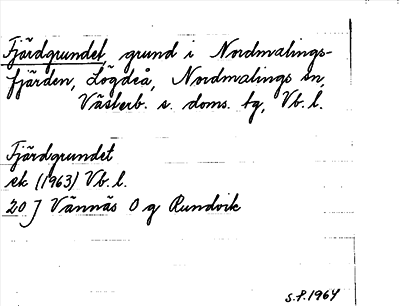 Fjärdgrundet, grund i Nordmalings-
fjärden, Lögdeå, Nordmalings sn,
Västerb. s. doms. tg, Vb. l.
Fjärdgrundet
ek (1963) Vb. l.
20 J Vännäs O g Rundvik
S.P. 1964